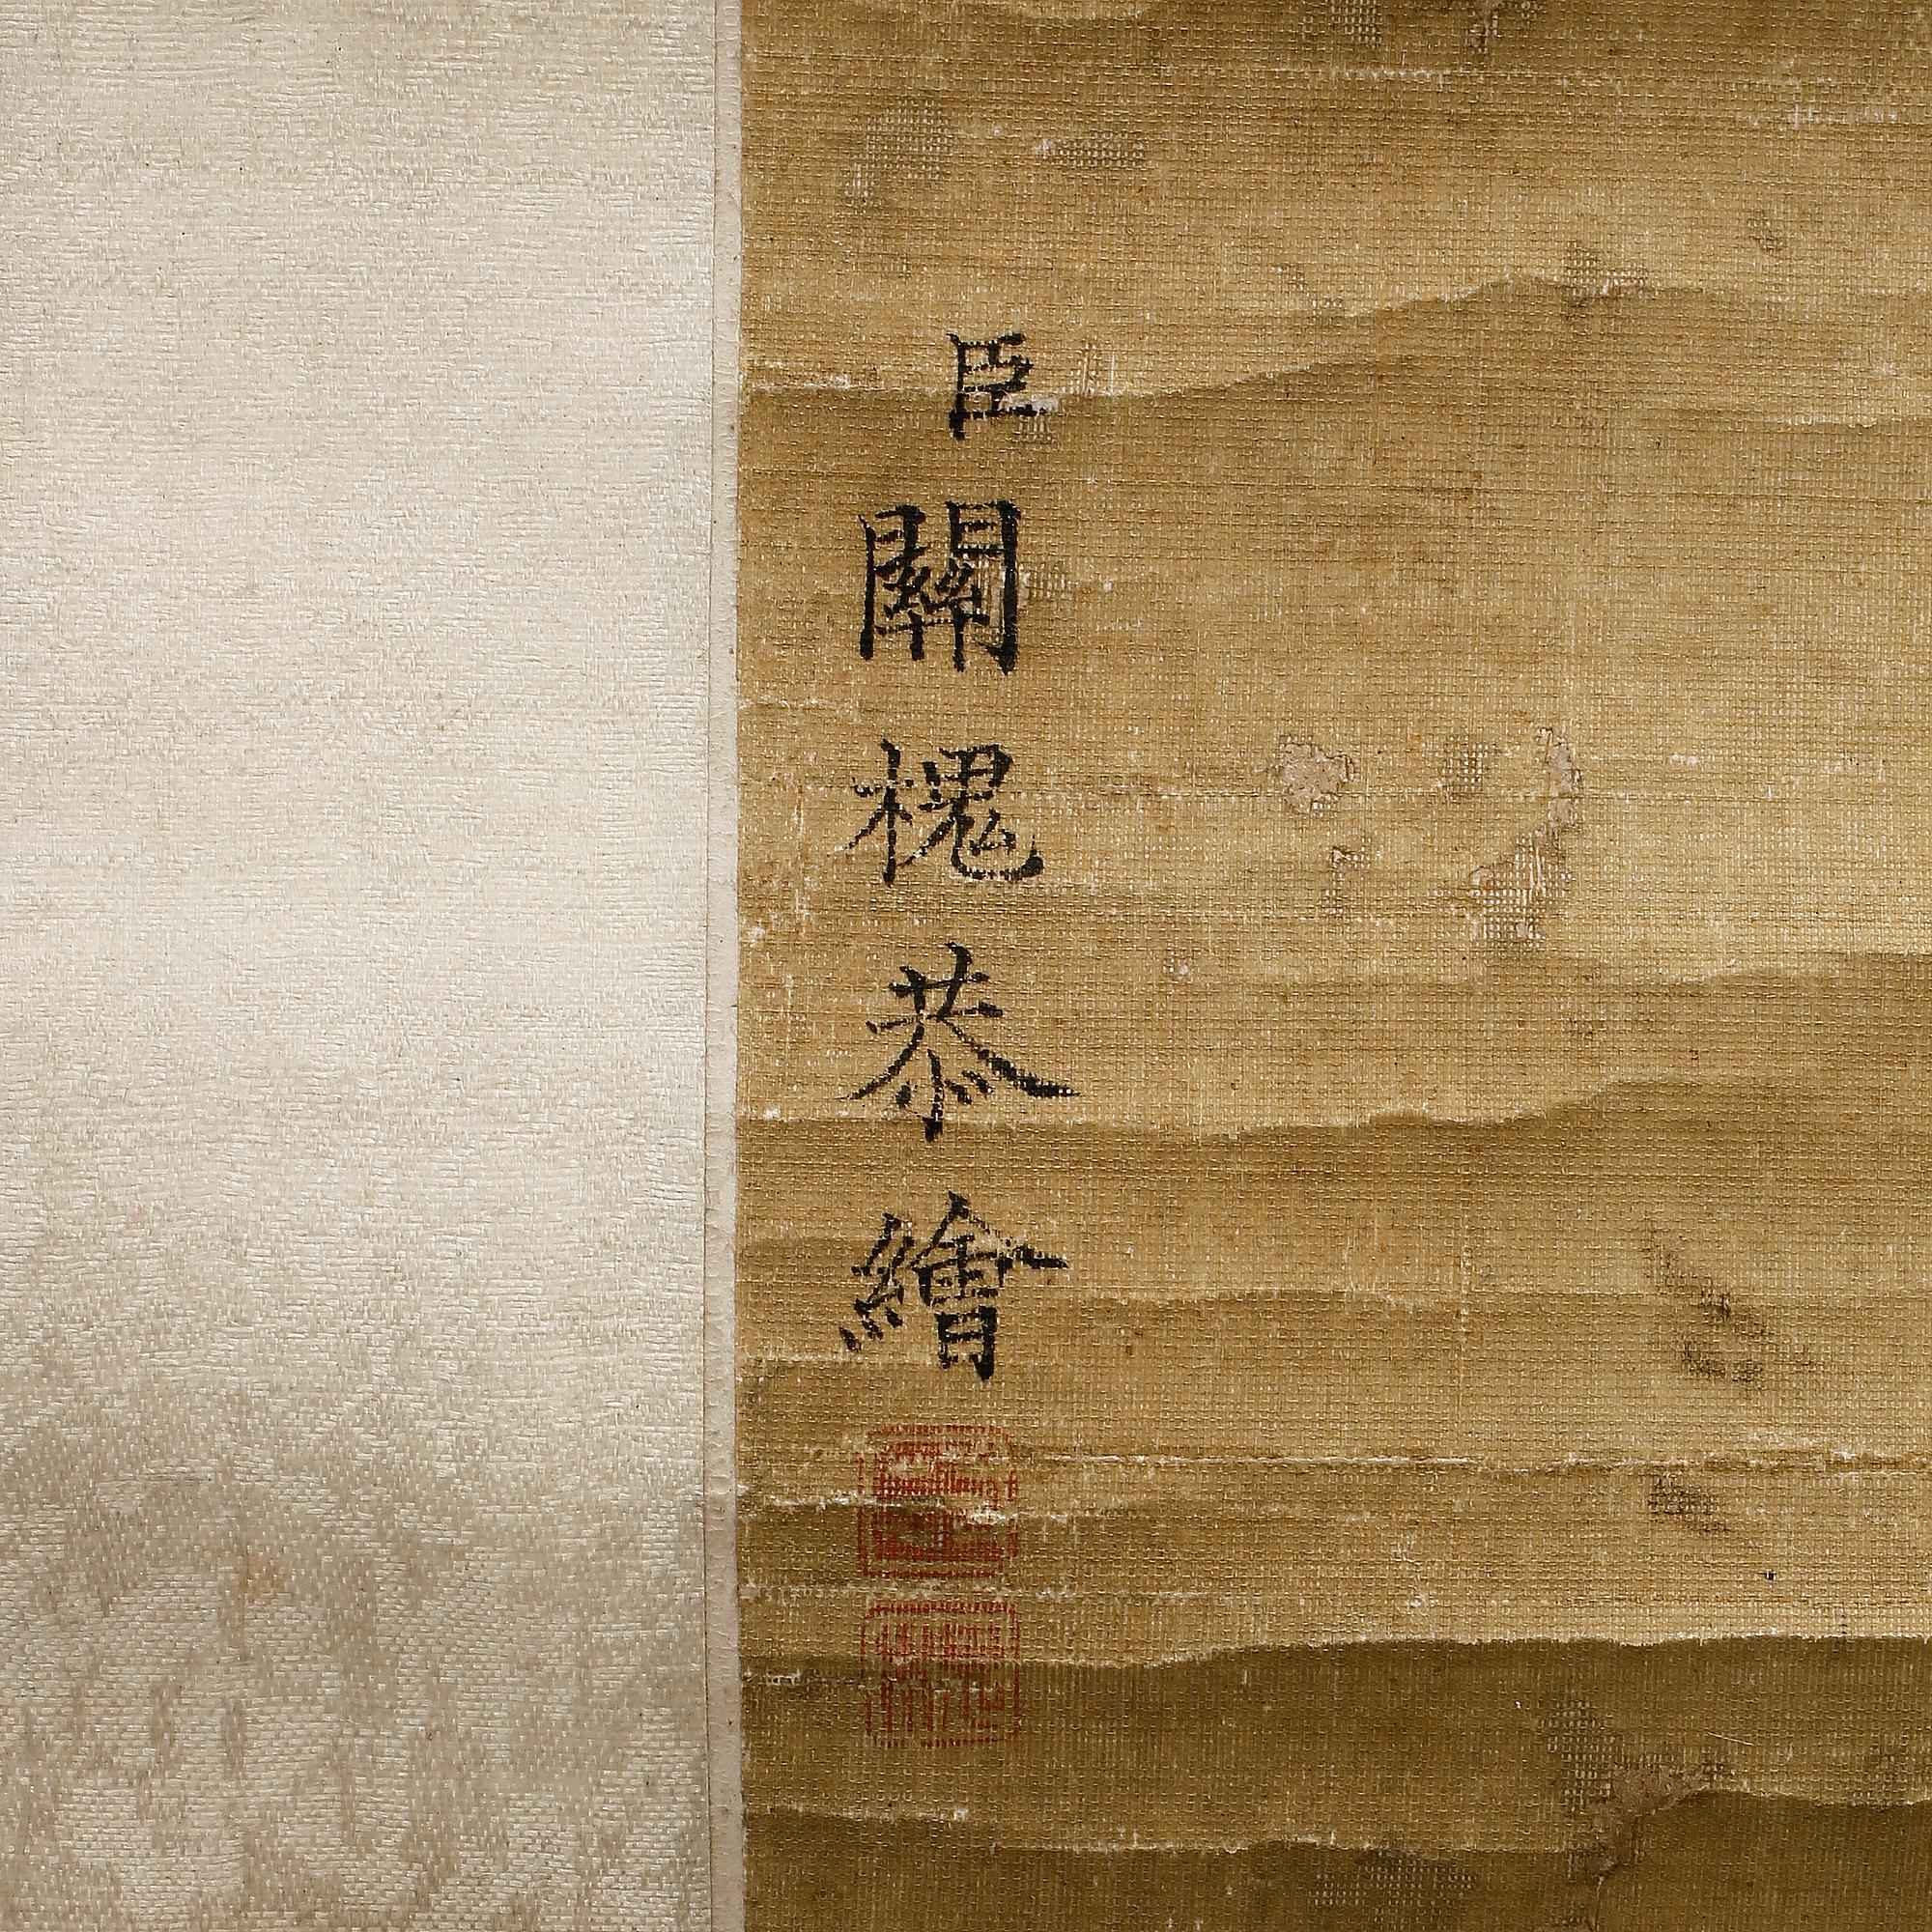 臣關槐恭繪